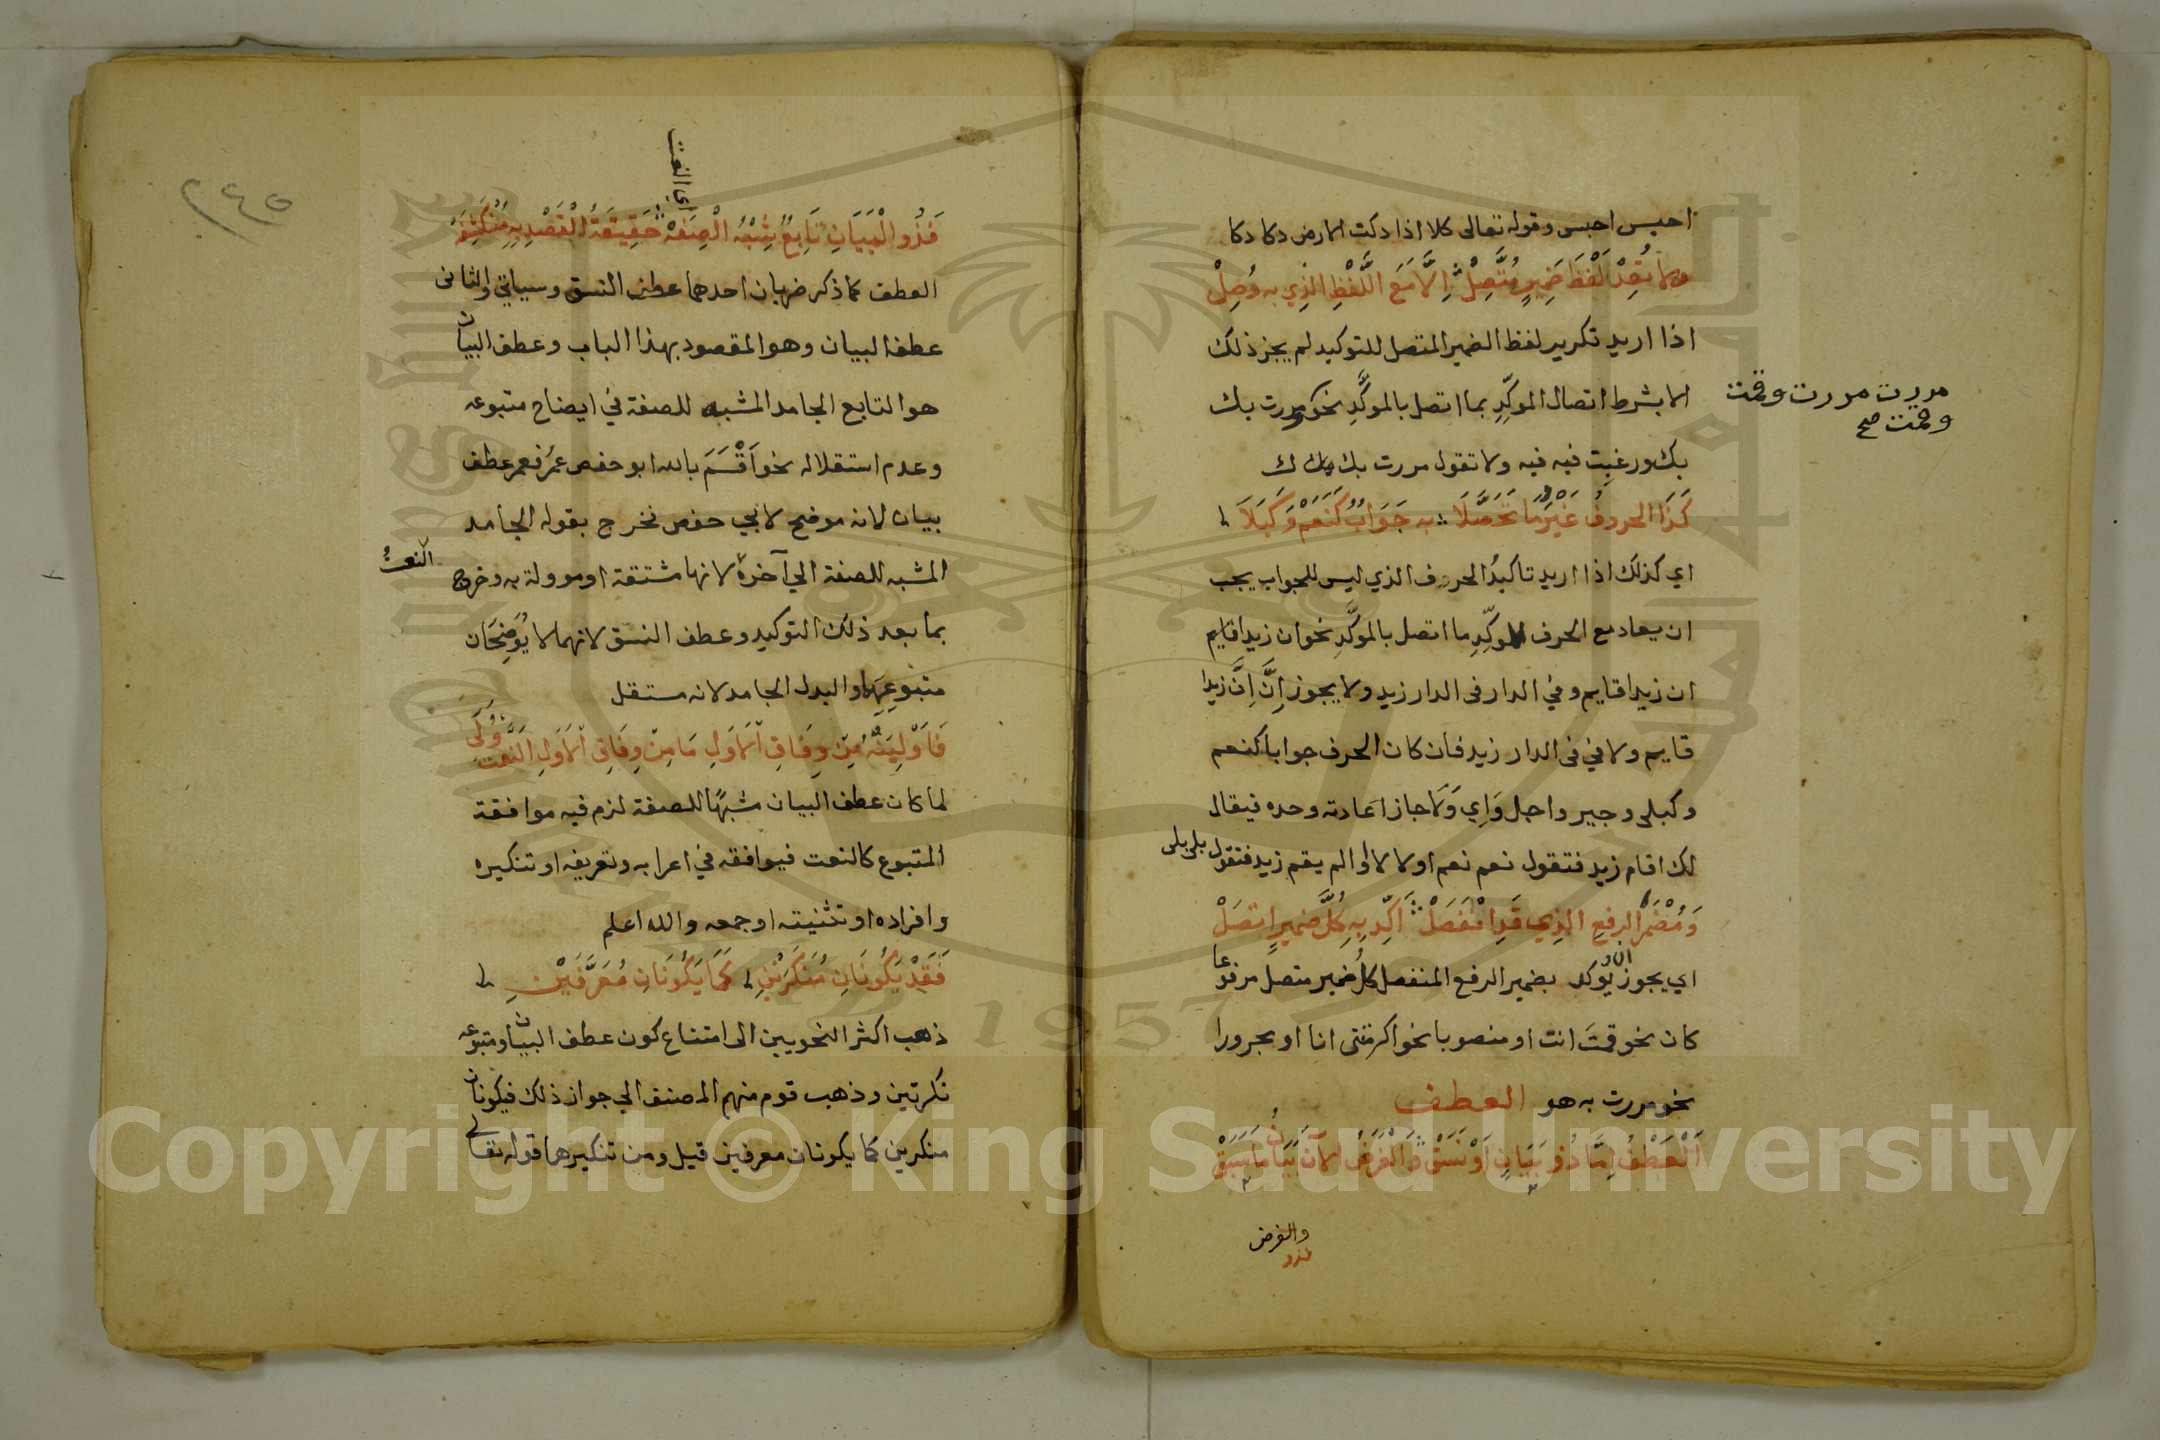 احبس احبس وقوله تعالى كلا اذا دكت الارض دكا دكا
ولا تُعِدْ لَفْظَ ضَمِيرٍ مُتَّصِلْ اِلَّا مَعَ اللَّفْظِ الَّذِي بِهِ وُصِلْ
اذا اريد تكرير لفظ الضمير المتصل للتوكيد لم يجز ذلك
الا بشرط اتصال الموكِّدِ بما اتصل بالموكَّدِ نحو مررت بك
مررت مررت وقمت
وقمت صح
بك ورغبت فيه فيه ولا تقول مررت بك ك
كَذَا الحروفُ غَيْرُ مَا تَحَصَّلَا به جَوَابٌ كَنَعَمْ وَكَبَلَا
اي كذلك اذا اريد تاكيدُ الحروف الذي ليس للجواب يجب
ان يعاد مع الحرف الموكِّدِ ما اتصل بالموكَّدِ نحو ان زيدا قايم
ان زيدا قايم وفي الدار فى الدار زيد ولا يجوز اِنَّ اِنَّ زيدا
قايم ولا في فى الدار زيد فان كان الحرف جوابا كنعم
وكبلى وجير واجل وَاِي وَلَا جاز اعادته وحده فيقال
لك اقام زيد فتقول نعم نعم او لا لا والم يقم زيد فتقول بلى بلى
وَمُضْمَرُ الرفعِ الذِي قَدِ انْفَصَلْ اَكِّدْ بِهِ كُلَّ ضميرٍ اتصَلْ
اي يجوز ان يوكد بضمير الرفع المنفصل كلُ ضمير متصل مرفوعا
كان نحو قمتَ انت او منصوبا نحو اكرمتنى انا او مجرورا
نحو مررت به هو العطف
اَلْعَطْفُ اِمَّا ذُو بَيَانٍ اَوْ نَسَقْ وَالْغَرَضُ الآنَ بَيَانُ مَا سَبَقْ
والغرض
فذو
٢٤٥
اي النعت
فَذُو الْبَيَانِ تَابِعٌ شِبْهُ الْصِفَهْ حَقِيقَةُ الْقَصْدِ بِهِ مُنْكَشِفَهْ
العطف كما ذكر ضربان احدهما عطف النسق وسياتي والثانى
عطف البيان وهو المقصود بهذا الباب وعطف البيان
هو التابع الجامد المشبه للصفة في ايضاح متبوعه
وعدم استقلاله نحو اَقْسَمَ بالله ابو حفص عمَرْ فعمر عطف
بيان لانه موضح لابي حفص فخرج بقوله الجامد
المشبه للصفة الى آخره لانها مشتقة او موولة به وخرج
النعتُ
بما بعد ذلك التوكيد وعطف النسق لانهما لا يُوَضِحَان
متبوعِهِما والبدل الجامد لانه مستقل
فَاَوْلِيَنْهُ مِنْ وِفَاقِ الْاَوَلِ مَا مِنْ وِفَاقِ الْاَوَلِ النَّعْتُ وَلِي
لما كان عطف البيان مشبهًا للصفة لزم فيه موافقة
المتبوع كالنعت فيوافقه في اعرابه وتعريفه او تنكيره
وافراده او تثنيته او جمعه والله اعلم
فَقَدْ يَكُونَانِ مُنَكَرَيْنِ كَمَا يَكُونَانِ مُعَرَّفَيْنِ
ذهب اكثر النحويين الى امتناع كون عطف البيان ومتبوعه
نكرتين وذهب قوم منهم المصنف الي جواز ذلك فيكونان
منكرين كما يكونان معرفين قيل ومن تنكيرهما قوله تعالى